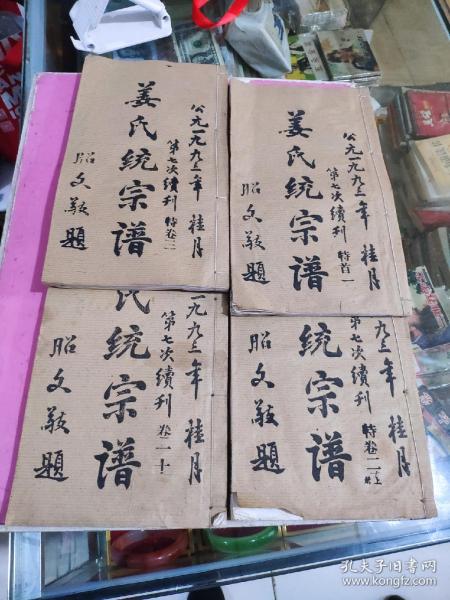 公元一九九三年 桂月
第七次續刊 特卷二
姜氏統宗谱
昭文敬題
公元一九九三年 桂月
第七次續刊 特首一
姜氏統宗譜
昭文敬題
一九九三年 桂月
第七次續刊 卷二十
氏統宗谱
昭文敬題
九九三年 桂月
第七次續刊 特卷二上
統宗谱
昭文敬題
孔夫子旧书网
www.kongfz.com